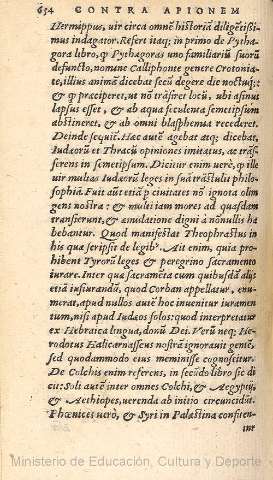 654 CONTRA APIONEM
Hermippus, uir circa omnē historiā diligētissi
mus indagator. Refert itaq; in primo de Pytha
gora libro, q̃ Pythagoras uno familiariū suorū
defuncto, nomine Calliphonte genere Crotonia-
te, illius animā dicebat secū degere die noctuq;:
& q̃ præciperet, ut nō trāsiret locū, ubi asinus
lapsus esset, & ab aqua fæculenta semetipsum
abstineret, & ab omni blasphemia recederet.
Deinde sequit̃. Hæc autē agebat atq; dicebat,
Iudæorū et Thracū opiniones imitatus, ac trās-
ferens in semetipsum. Dicitur enim uerè, q̃ ille
uir multas Iudæorū leges in suā trāstulit philo-
sophiā. Fuit aūt etiā p ciuitates nō ignota olim
gens nostra: & multi iam mores ad quasdam
transierunt, & æmulatione digni à nōnullis ha
bebantur. Quod manifestat Theophrastus in
his quæ scripsit de legib. Ait enim, quia pro-
hibent Tyrorū leges & peregrino sacramento
iurare. Inter quæ sacramēta cum quibusdā alijs
etiā iusiurandū, quod Corban appellatur, enu-
merat, apud nullos autē hoc inuenitur iuramen-
tum, nisi apud Iudæos solos: quod interpretatur
ex Hebraica lingua, donū Dei. Verū neq; He-
rodotus Halicarnasseus nostrā ignorauit gentē,
sed quodammodo eius meminisse cognoscitur.
De Colchis enim referens, in secūdo libro sic di
cit: Soli autē inter omnes Colchi, & Aegyptij,
& Aethiopes, uerenda ab initio circuncidūt.
Phœnices uerò, & Syri in Palæstina confiten-
tur
Ministerio de Educación, Cultura y Deporte